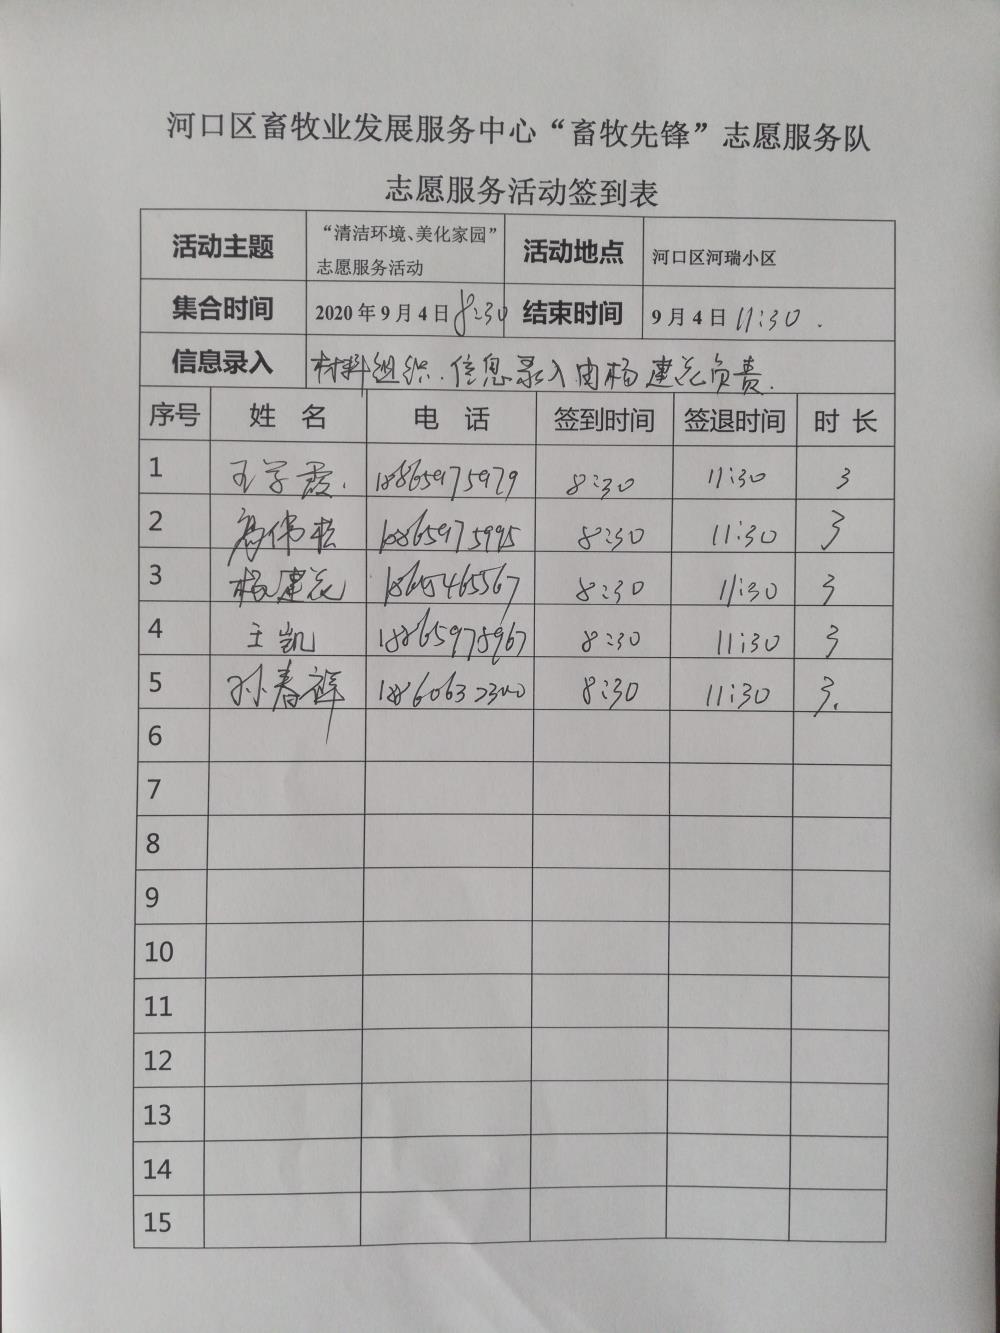 河口区畜牧业发展服务中心“畜牧先锋”志愿服务队
志愿服务活动签到表
活动主题 “清洁环境、美化家园”志愿服务活动 活动地点 河口区河瑞小区
集合时间 2020年9月4日8:30 结束时间 9月4日11:30.
信息录入 材料组织.信息录入由杨建花负责.
序号 姓名 电话 签到时间 签退时间 时长
1 王学霞. 18865975979 8:30 11:30 3
2 高伟松 18865975995 8:30 11:30 3
3 杨建花 18615465567 8:30 11:30 3
4 王凯 18865975967 8:30 11:30 3
5 孙春祥 8:30 11:30 3.
6
7
8
9
10
11
12
13
14
15